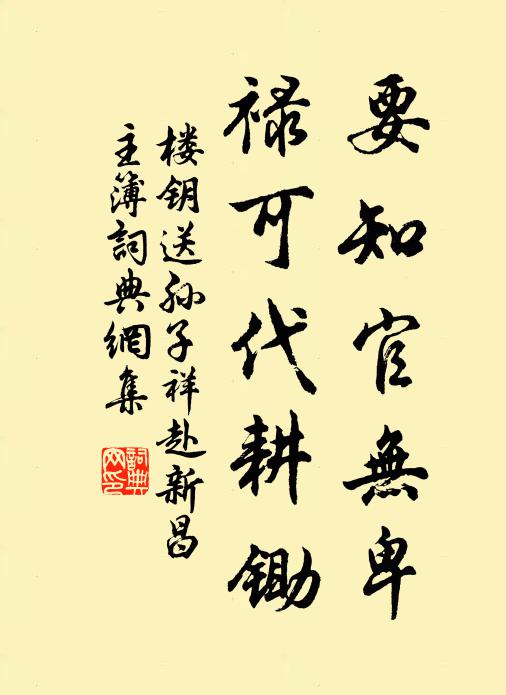 要知官無卑
禄可代耕鋤
楼钥送孙子祥赴新昌
主簿詞典網集
詞典网印